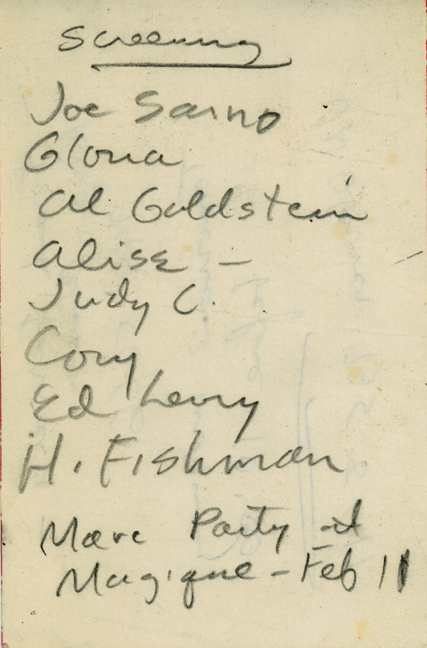 Screening
Joe Sarno
Gloria
Al Goldstein
Alise -
Judy C.
Cory
Ed Levry
H. Fishman
Marc Party at
Magique - Feb 11